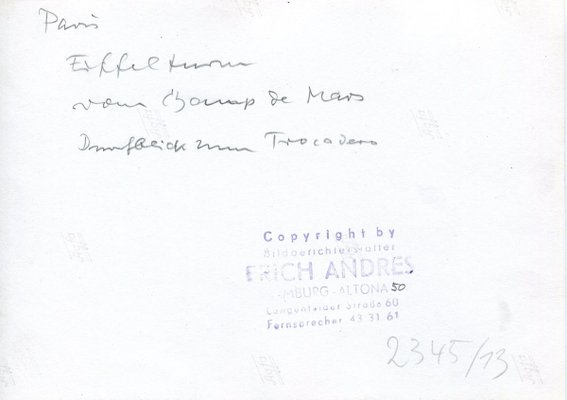 Paris
Eiffelturm
vom Champ de Mars
Durchblick zum Trocadero
Copyright by
Bildberichterstatter
ERICH ANDRES
-MBURG-ALTONA 50
Langenfelder Straße 60
Fernsprecher 43 31 61
2345/13